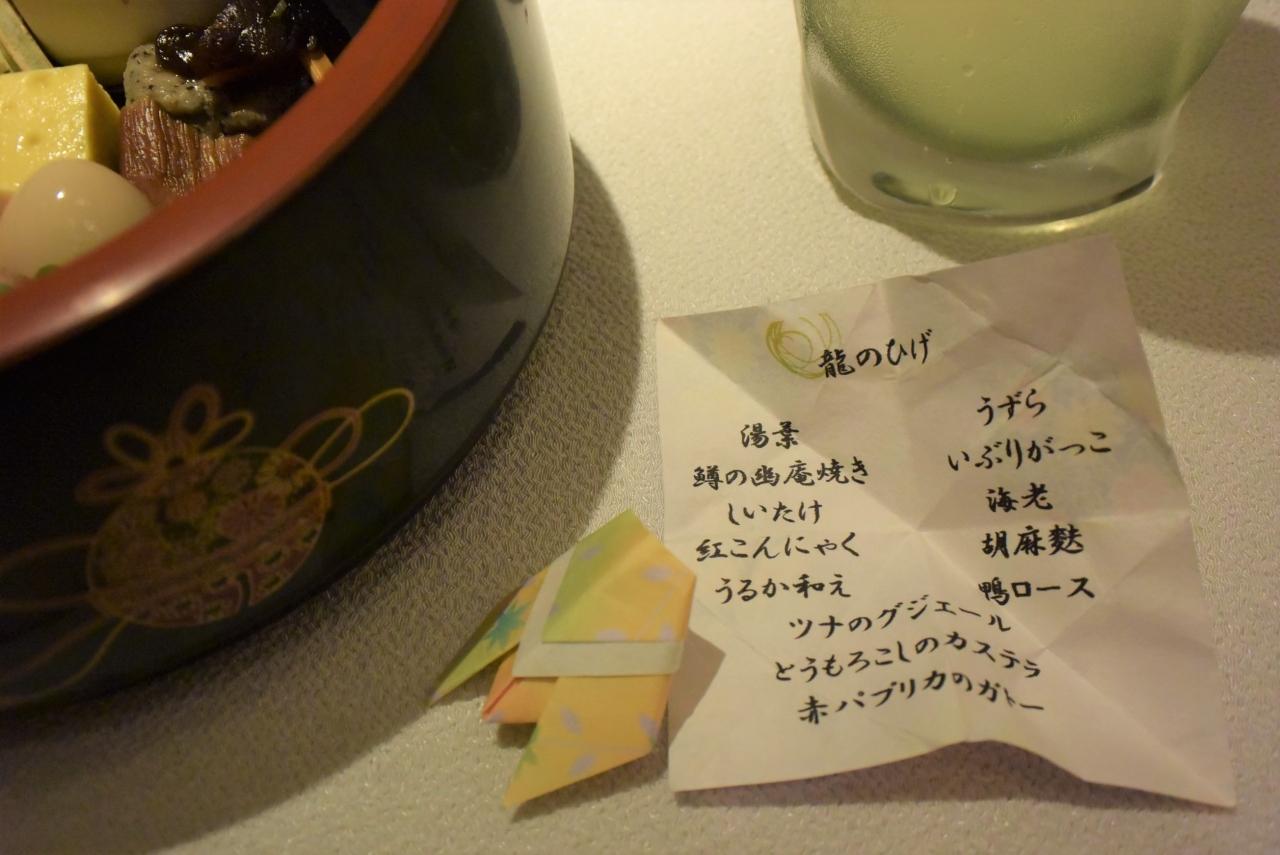 龍のひげ
湯葉
鱒の幽庵焼き
しいたけ
紅こんにゃく
うるか和え
うずら
いぶりがっこ
海老
胡麻麩
鴨ロース
ツナのグジェール
とうもろこしのカステラ
赤パプリカのガトー